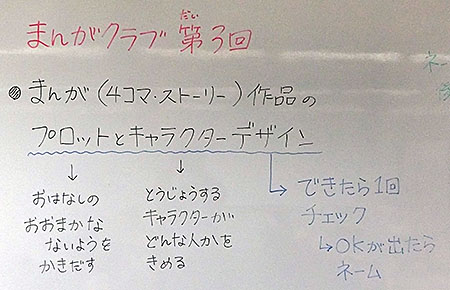 まんがクラブ 第3回
だい
● まんが(4コマ・ストーリー)作品の
プロットとキャラクターデザイン
↓
おはなしの
おおまかな
ないようを
かきだす
↓
とうじょうする
キャラクターが
どんな人かを
きめる
→ できたら1回
チェック
↳ OKが出たら
ネーム
ネー